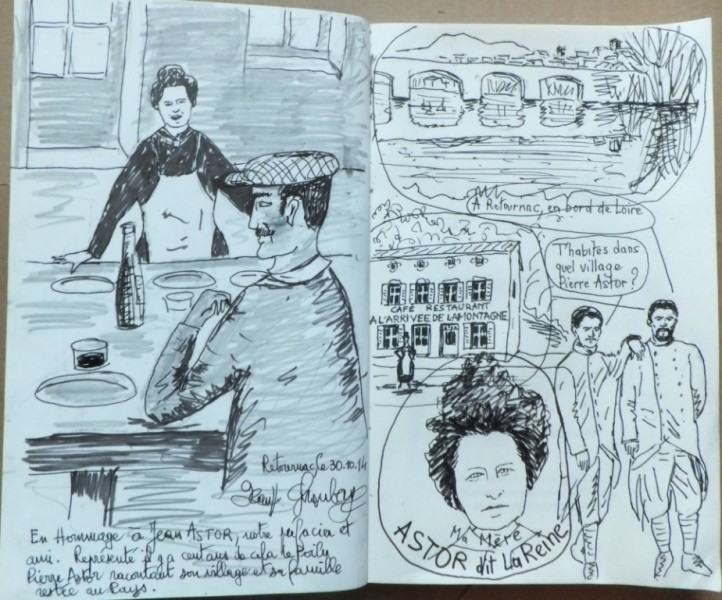 Retournac le 30.10.14
En Hommage à Jean ASTOR, notre
et
ami. Représenté il y a cent ans de cela le Poilu
Pierre Astor racontant son village et sa famille
restée au Pays.
A Retournac, en bord de Loire
T'habites dans
quel village
Pierre Astor ?
CAFÉ RESTAURANT
A L'ARRIVEE DE LA MONTAGNE
Ma Mère
ASTOR dit La Reine